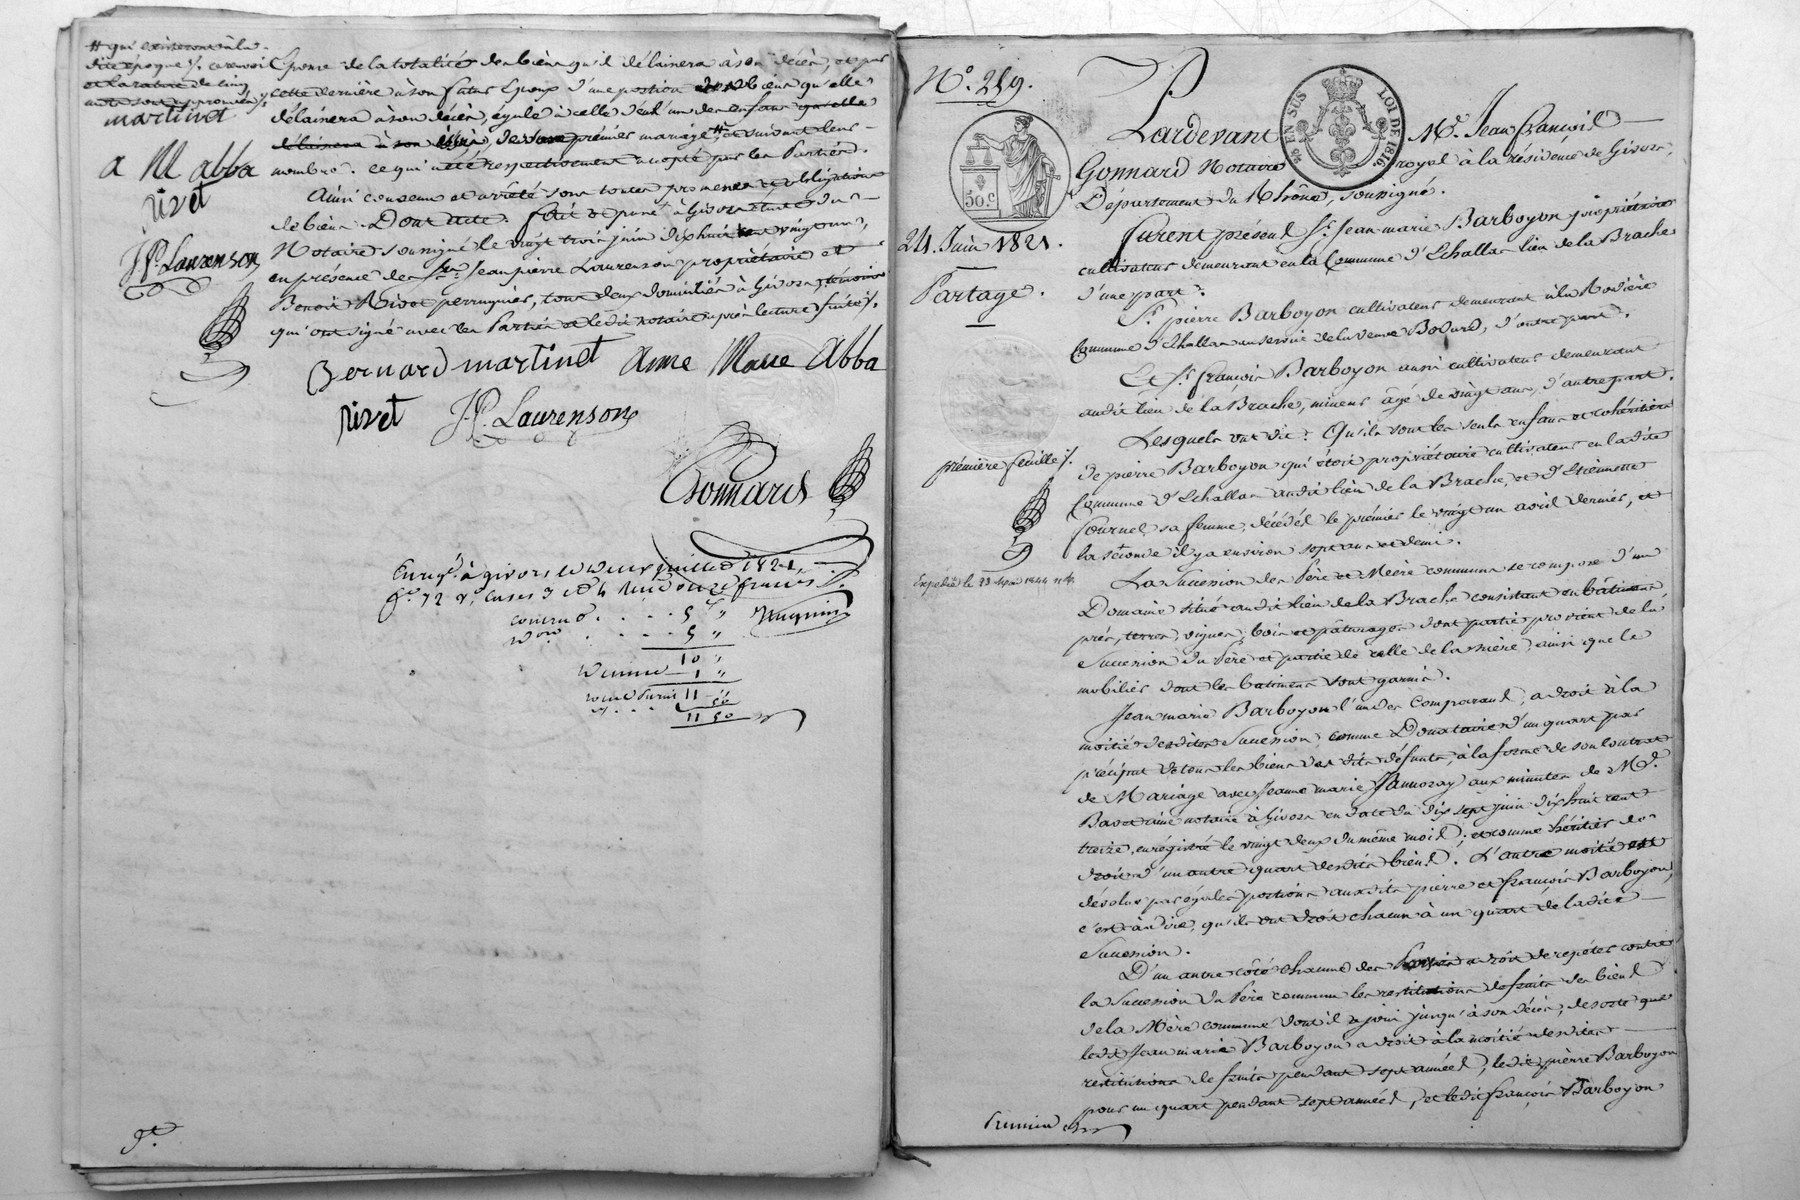 # qui existeront à la
dite époque /. ce renvoi
et la rature de cinq
mots sont approuvés /.
martinet
a M abba
rivet
J.P. Laurenson
Epouse de la totalité des biens qu'il délaissera à son décès, et par
cette dernière à son futur Epoux d'une portion des biens qu'elle
délaissera à son décès, égale à celle de l'un des enfans qu'elle
délaissera à son décès, de son premier mariage # et suivant leur
nombre. ce qui a été respectivement accepté par les Parties.
Ainsi convenu et arrêté sous toutes promesses et obligations
de biens. Dont acte. fait et passé à Givors étude du
Notaire soussigné le vingt trois juin dix huit cent vingt un,
en présence des Srs. Jean pierre Laurenson propriétaire et
Benoit Rivet perruquier, tous deux domiciliés à Givors, témoins
qui ont signé avec les Parties et le dit notaire après lecture faite /.
Bernard martinet anne Marie Abba
rivet J.P. Laurenson
Gonnard
Enregé. à givors le deux juillet 1821,
fo. 72 Vo. Cases 3 et 4 Reçu onze francs
contrat . . . . 5 "
don . . . . 5 "
10 "
Dixme 1 "
11
11 50
N°. 219.
50.C
EN SUS
LOI DE 1816.
24 Juin 1821.
Partage.
première feuille /.
Pardevant Me. Jean françois
Gonnard Notaire royal à la résidence de Givors,
Département du Rhône, soussigné.
furent présens Sr. Jean marie Barboyon propriétaire
cultivateur demeurant en la Commune d'Echallas lieu de la Brache
d'une part.
Sr. pierre Barboyon cultivateur demeurant à la Rodière
Commune d'Echallas au service de la veuve Bodurd, d'autre part.
Et Sr. françois Barboyon aussi cultivateur demeurant
audit lieu de la Brache, mineur âgé de vingt ans, d'autre part.
Lesquels ont dit : Qu'ils sont les seuls enfans et cohéritiers
de pierre Barboyon qui étoit propriétaire cultivateur en ladite
Commune d'Echallas audit lieu de la Brache, et d'Etiennette
Fournel sa femme, décédés le premier le vingt un avril dernier, et
la seconde il y a environ sept ans et demi.
La Succession des Père et Mère communs se compose d'un
Domaine situé audit lieu de la Brache consistant en bâtimens,
prés, terres, vignes, bois et pâturages dont partie provient de la
Succession du Père et partie de celle de la mère, ainsi que le
mobilier dont les bâtimens sont garnis.
Jean marie Barboyon l'un des Comparans, a droit à la
moitié desdites Succession comme Donataire d'un quart par
préciput de tous les biens des dits défunts, à la forme de son Contrat
de Mariage avec Jeanne marie Jamoray aux minutes de Me.
Bavet ainé notaire à Givors en date du dix sept juin dix huit cent
treize, enregistré le vingt deux du même mois; et comme héritier de
droit d'un autre quart desdits biens. L'autre moitié est
dévolue par égales portions auxdits pierre et françois Barboyon,
c'est à dire, qu'ils ont droit chacun à un quart de ladite
Succession.
D'un autre côté chacune des Parties a droit de repéter contre
la Succession du Père commun les restitutions de fruits des biens
de la Mère commune dont il a joui jusqu'à son décès; de sorte que
ledit Jean marie Barboyon a droit à la moitié desdites
restitutions de fruits pendant sept années, ledit pierre Barboyon
pour un quart pendant sept années, et ledit françois Barboyon